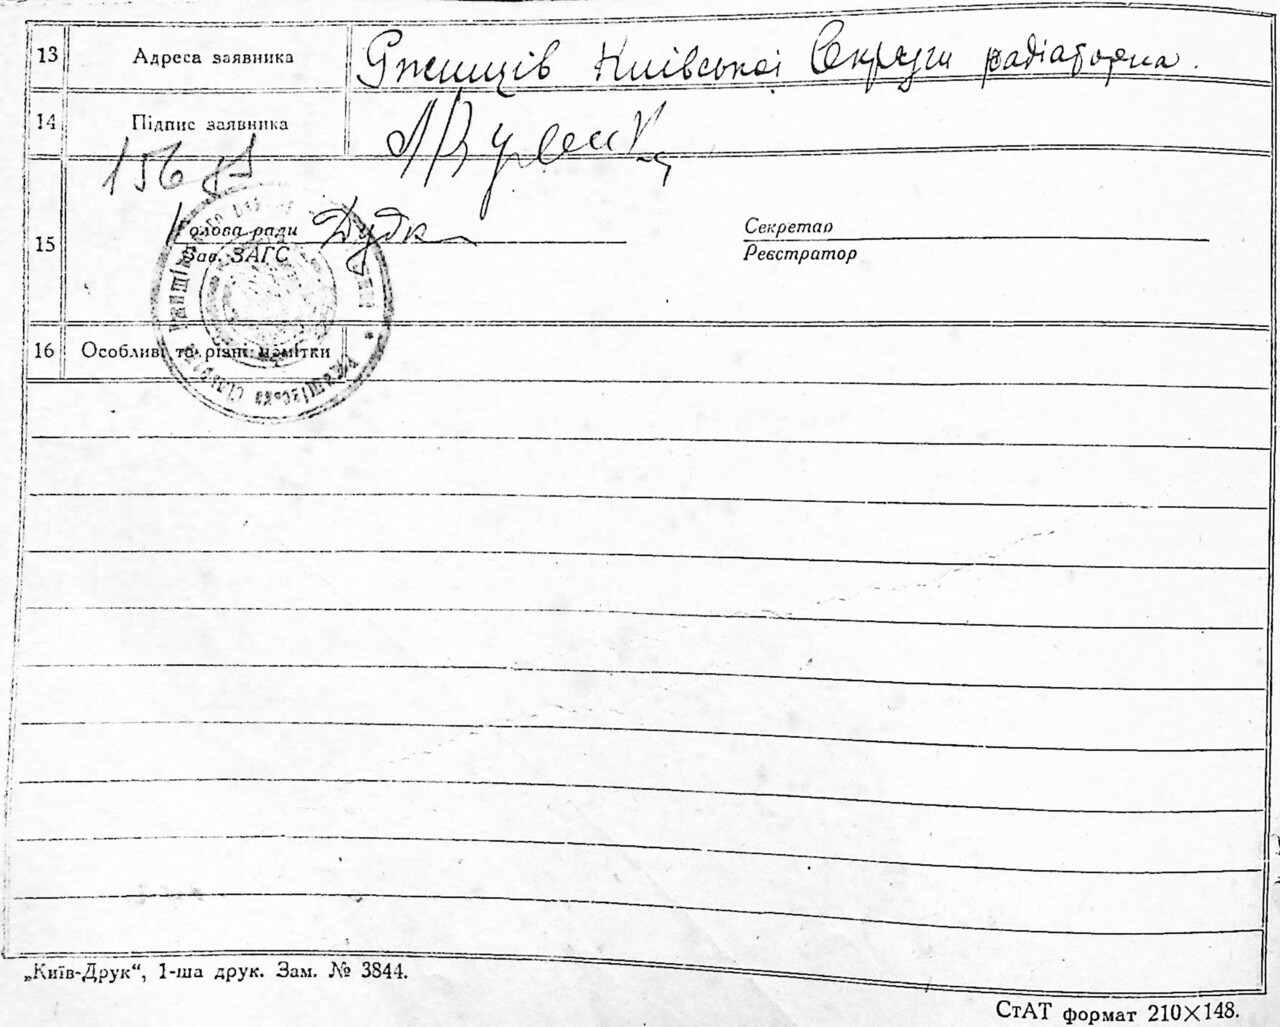 13 Адреса заявника Ржищів Київської Округи
14 Підпис заявника
156
Голова ради Дудка
Зав. ЗАГС
15
Секретар
Реєстратор
16 Особливі та різні помітки
„Київ-Друк“, 1-ша друк. Зам. № 3844.
СтАТ формат 210×148.